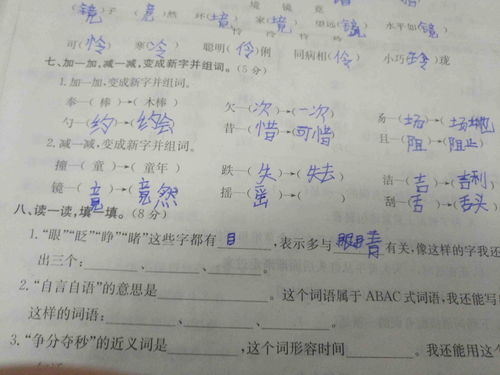 境 镜 竟
(镜)子 (竟)然 环(境) 家(境) 望远(镜) 水平如(镜)
伶 怜 冷 玲
可(怜) 寒(冷) 聪明(伶)俐 同病相(伶) 小巧(玲)珑
七、加一加,减一减,变成新字并组词。(5分)
1.加一加,变成新字并组词。
奉—(棒)→(木棒) 欠—(次)→(一次) 昜—(场)→(场地
勺—(约)→(约会) 昔—(惜)→(可惜) 且—(阻)→(阻止
2.减一减,变成新字并组词。
撞—(童)→(童年) 跌—(失)→(失去) 洁—(吉)→(吉利
镜—(竟)→(竟然 摇—(䍃)→( ) 刮—(舌)→(舌头
八、读一读,填一填。(8分)
1.“眼”“眨”“睁”“睹”这些字都有 目 ,表示多与 眼睛 有关,像这样的字我还
出三个: 、 、 。
2.“自言自语”的意思是 。这个词语属于ABAC式词语,我还能写
这样的词语: 、 、 。
3.“争分夺秒”的近义词是 ,这个词形容时间 。我还能用这个